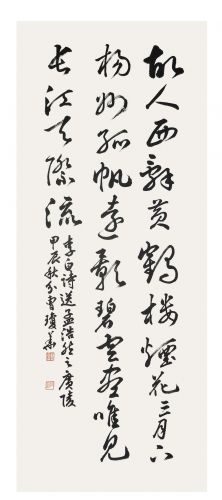 故人西辭黄鶴樓煙花三月下
揚州孤帆遠影碧空盡唯見
長江天際流
李白詩送孟浩然之廣陵
甲辰秋分曹瓊